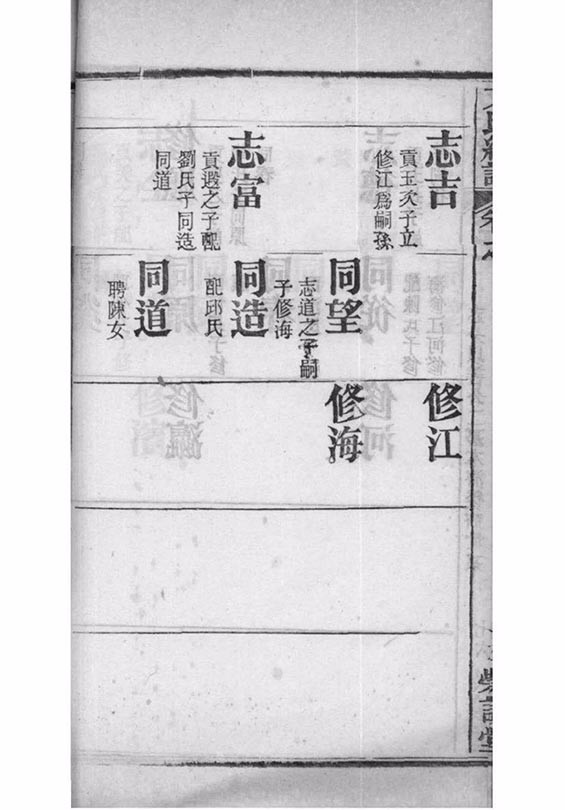 志吉
貢玉次子立
修江爲嗣孫
志富
貢遐之子配
劉氏子同造
同道
同望
志道之子嗣
子修海
同造
配邱氏
同道
聘陳女
修江
修海